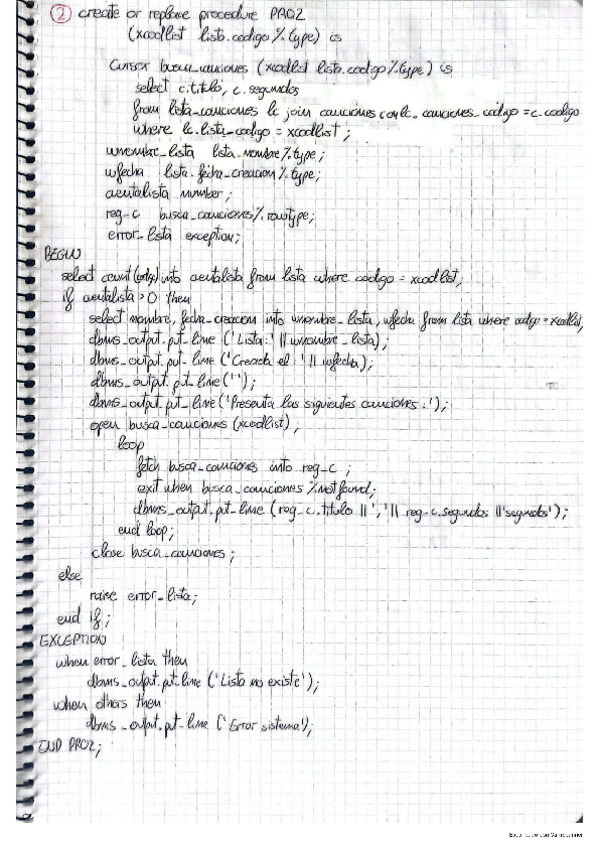 ② create or replace procedure PRO2
(xcodlist lista.codigo%type) is
Cursor busca_canciones (xcodlist lista.codigo%type) is
select c.titulo, c.segundos
from lista_canciones lc join canciones c on lc.canciones_codigo = c.codigo
where lc.lista_codigo = xcodlist;
wnombre_lista lista.nombre%type;
wfecha lista.fecha_creacion%type;
cuentalista number;
reg_c busca_canciones%rowtype;
error_lista exception;
BEGIN
select count(codigo) into cuentalista from lista where codigo = xcodlist;
if cuentalista > 0 then
select nombre, fecha_creacion into wnombre_lista, wfecha from lista where codigo = xcodlist;
dbms_output.put_line ('Lista: ' || wnombre_lista);
dbms_output.put_line ('Creada el: ' || wfecha);
dbms_output.put_line ('');
dbms_output.put_line ('Presenta las siguientes canciones:');
open busca_canciones (xcodlist);
loop
fetch busca_canciones into reg_c;
exit when busca_canciones%notfound;
dbms_output.put_line (reg_c.titulo || ', ' || reg_c.segundos || 'segundos');
end loop;
close busca_canciones;
else
raise error_lista;
end if;
EXCEPTION
when error_lista then
dbms_output.put_line ('Lista no existe');
when others then
dbms_output.put_line ('Error sistema');
END PRO2;